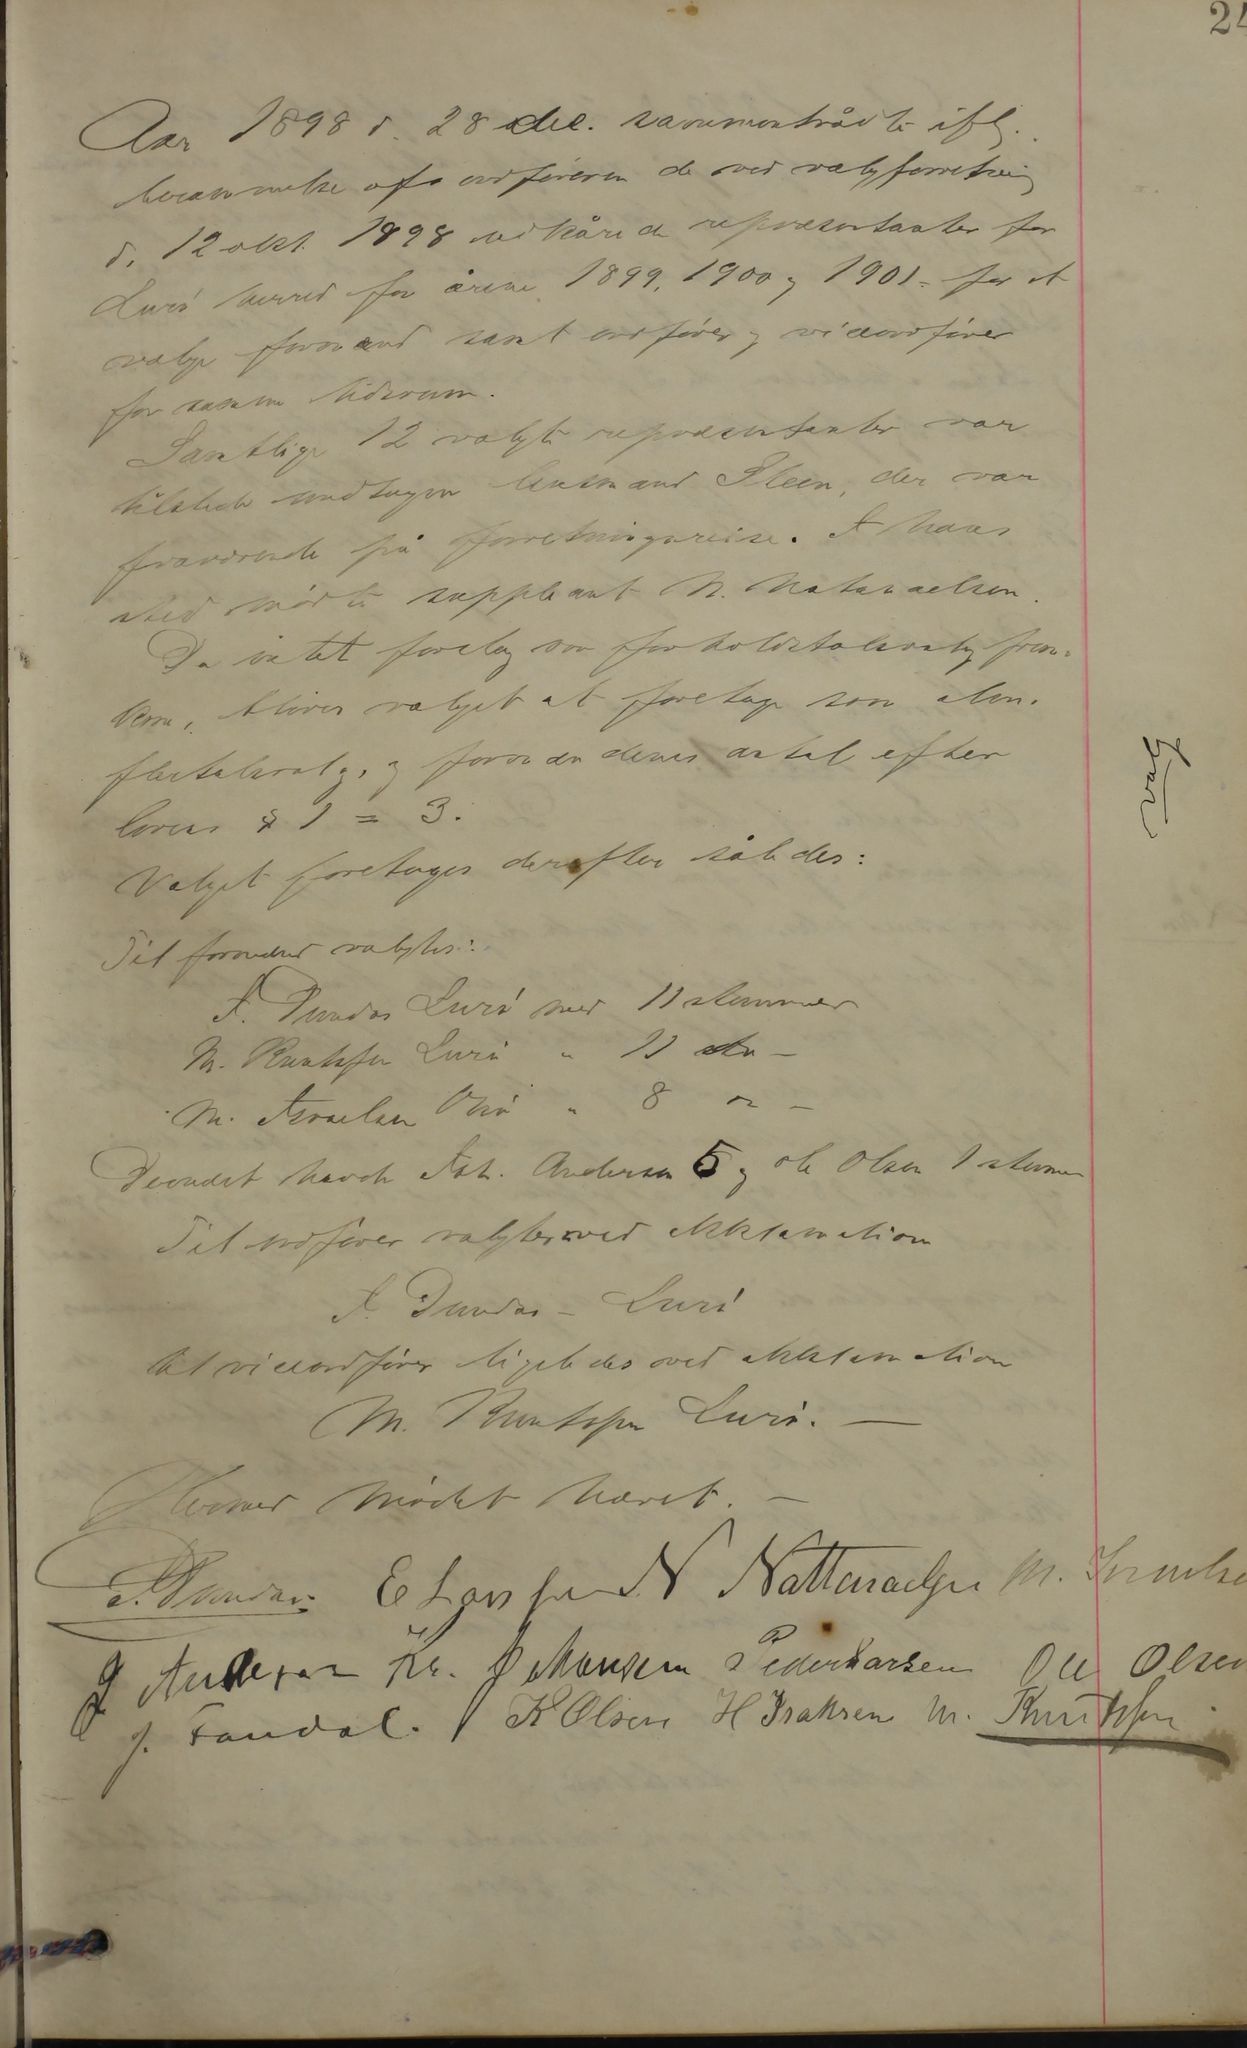 24
Aar 1898 d. 28 dec. sammentrådte ifl.
berammelse af ordføreren de ved valgforretning
d. 12 okt. 1898 udkårede repræsentanter for
Lurö herred for årene 1899, 1900 og 1901 - for at
vælge formænd samt ordfører og viceordfører
for samme tidsrum.
Samtlige 12 valgte repræsentanter var
tilstede undtagen lensmand Steen, der var
fraværende på forretningsreise. I hans
sted mödte suppleant N. Natanaelsen.
Da intet forslag om forholdstalsvalg frem-
kom, bliver valget at foretage som alm.
flertalsvalg, og formændenes antal efter
lovens § 1 = 3.
Valget foretages derefter således:
valg
Til formænd valgtes:
I. Dundas Lurö med 11 stemmer
M. Knutssen Lurö " 11 do -
M. Israelsen " 8 " -
Desuden havde Joh. Andersen 5 og Ole Olsen 1 stemme
Til ordfører valgtes ved akklamation
I. Dundas - Lurö
til viceordfører ligeledes ved akklamation
M. Knutssen Lurö. -
Hermed mödet hævet. -
I. Dundas. E Larssen N Nattanaelsen M. Israelse
J Andersen Kr. Johansen Peder Larsen Ole Olsen
J. Tandal. K Olsen H Isaksen M. Knutssen